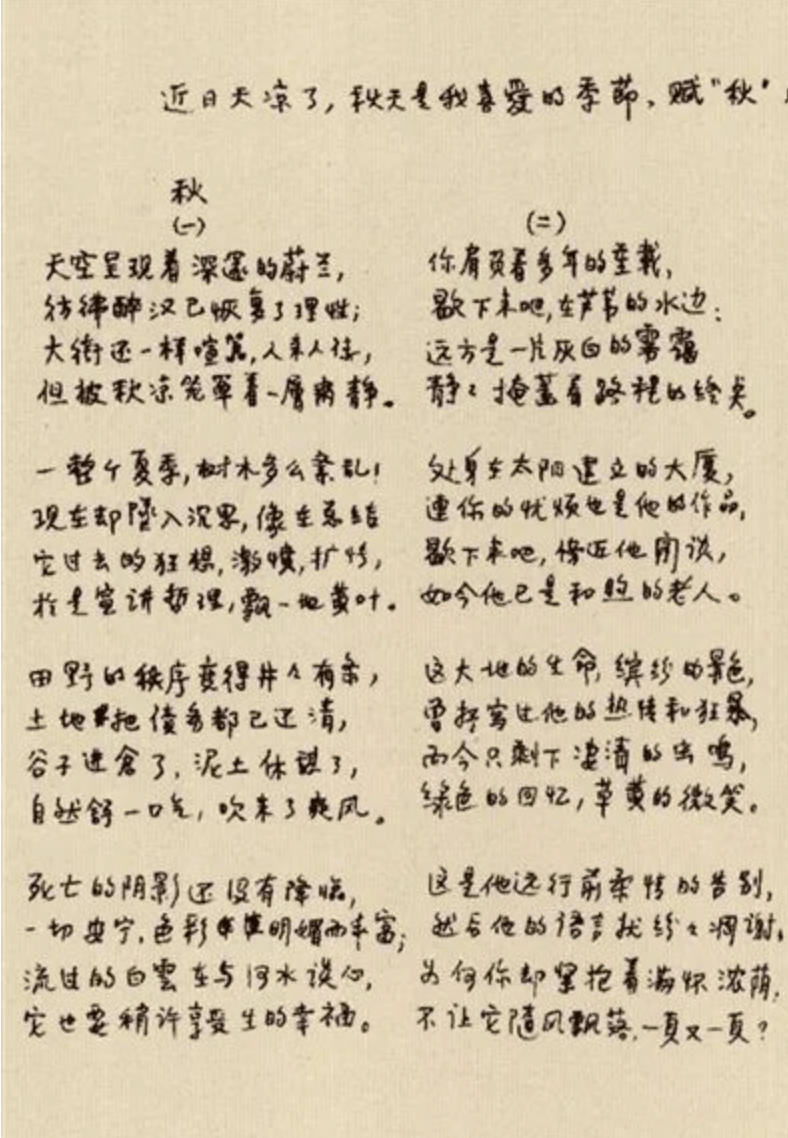 近日天凉了，秋天是我喜爱的季節、赋“秋”
秋
（一）
天空呈现着深邃的蔚兰，
彷彿醉汉已恢复了理性；
大街还一样喧笼，人来人往，
但被秋凉笼罩着一層肃静。
一整个夏季，树木多么紊乱！
现在却墜入沉思，像在总结
它过去的狂想，激愤，扩张，
於是宣讲哲理，飘一地黄叶。
田野的秩序变得井々有条，
土地把债务都已还清，
谷子进倉了，泥土休谌了，
自然舒一口气，吹来了爽风。
死亡的阴影还没有降临，
一切安宁，色彩明媚而丰富；
流过的白雲在与河水谈心，
它也要稍许享受生的幸福。
（二）
你肩负着多年的重载，
歇下来吧，在芦苇的水边：
远方是一片灰白的雾霭
静々掩盖着路程的终点。
处身在太阳建立的大厦，
连你的忧烦也是他的作品，
歇下来吧，傍近他闲谈，
如今他已是和煦的老人。
这大地的生命，缤纷的景色，
曾抒写过他的热情和狂暴，
而今只剩下凄清的虫鸣，
绿色的回忆，草黄的微笑。
这是他远行前柔情的告别，
然后他的语言就纷々凋谢，
为何你却紧抱着满怀浓荫，
不让它随风飘落，一頁又一頁？